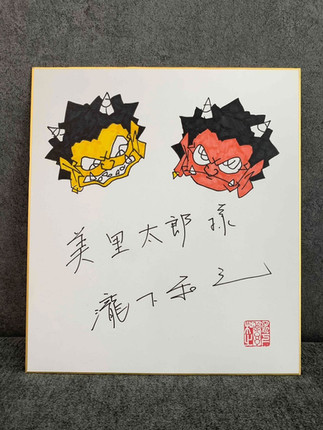 美里太郎様
瀧下和之